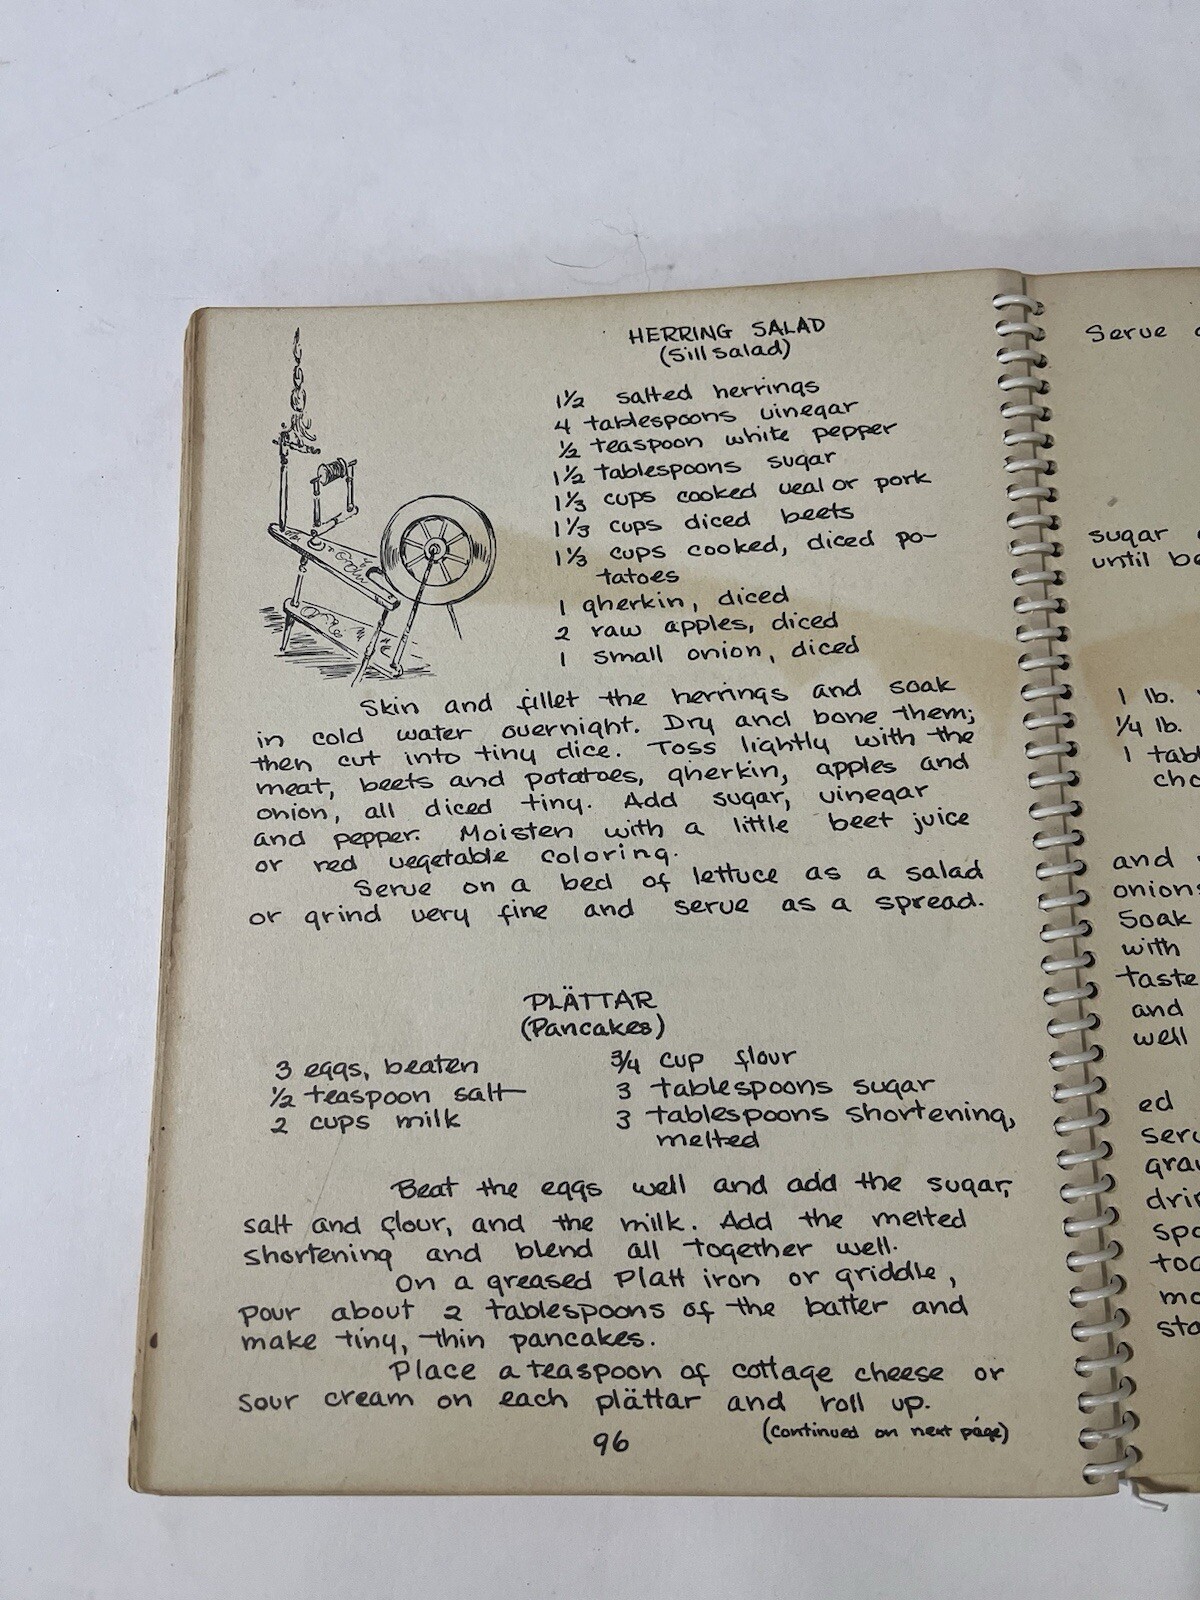 HERRING SALAD
(Sill salad)
1½ salted herrings
4 tablespoons vinegar
½ teaspoon white pepper
1½ tablespoons sugar
1⅓ cups cooked veal or pork
1⅓ cups diced beets
1⅓ cups cooked, diced po-
tatoes
1 gherkin, diced
2 raw apples, diced
1 small onion, diced
Skin and fillet the herrings and soak
in cold water overnight. Dry and bone them;
then cut into tiny dice. Toss lightly with the
meat, beets and potatoes, gherkin, apples and
onion, all diced tiny. Add sugar, vinegar
and pepper. Moisten with a little beet juice
or red vegetable coloring.
Serve on a bed of lettuce as a salad
or grind very fine and serve as a spread.
PLÄTTAR
(Pancakes)
3 eggs, beaten
½ teaspoon salt
2 cups milk
¾ cup flour
3 tablespoons sugar
3 tablespoons shortening,
melted
Beat the eggs well and add the sugar,
salt and flour, and the milk. Add the melted
shortening and blend all together well.
On a greased Platt iron or griddle,
pour about 2 tablespoons of the batter and
make tiny, thin pancakes.
Place a teaspoon of cottage cheese or
sour cream on each plättar and roll up.
(Continued on next page)
96
Serve
sugar
until
1 lb.
¼ lb.
1
and
onions
Soak
with
taste
and
well
ed